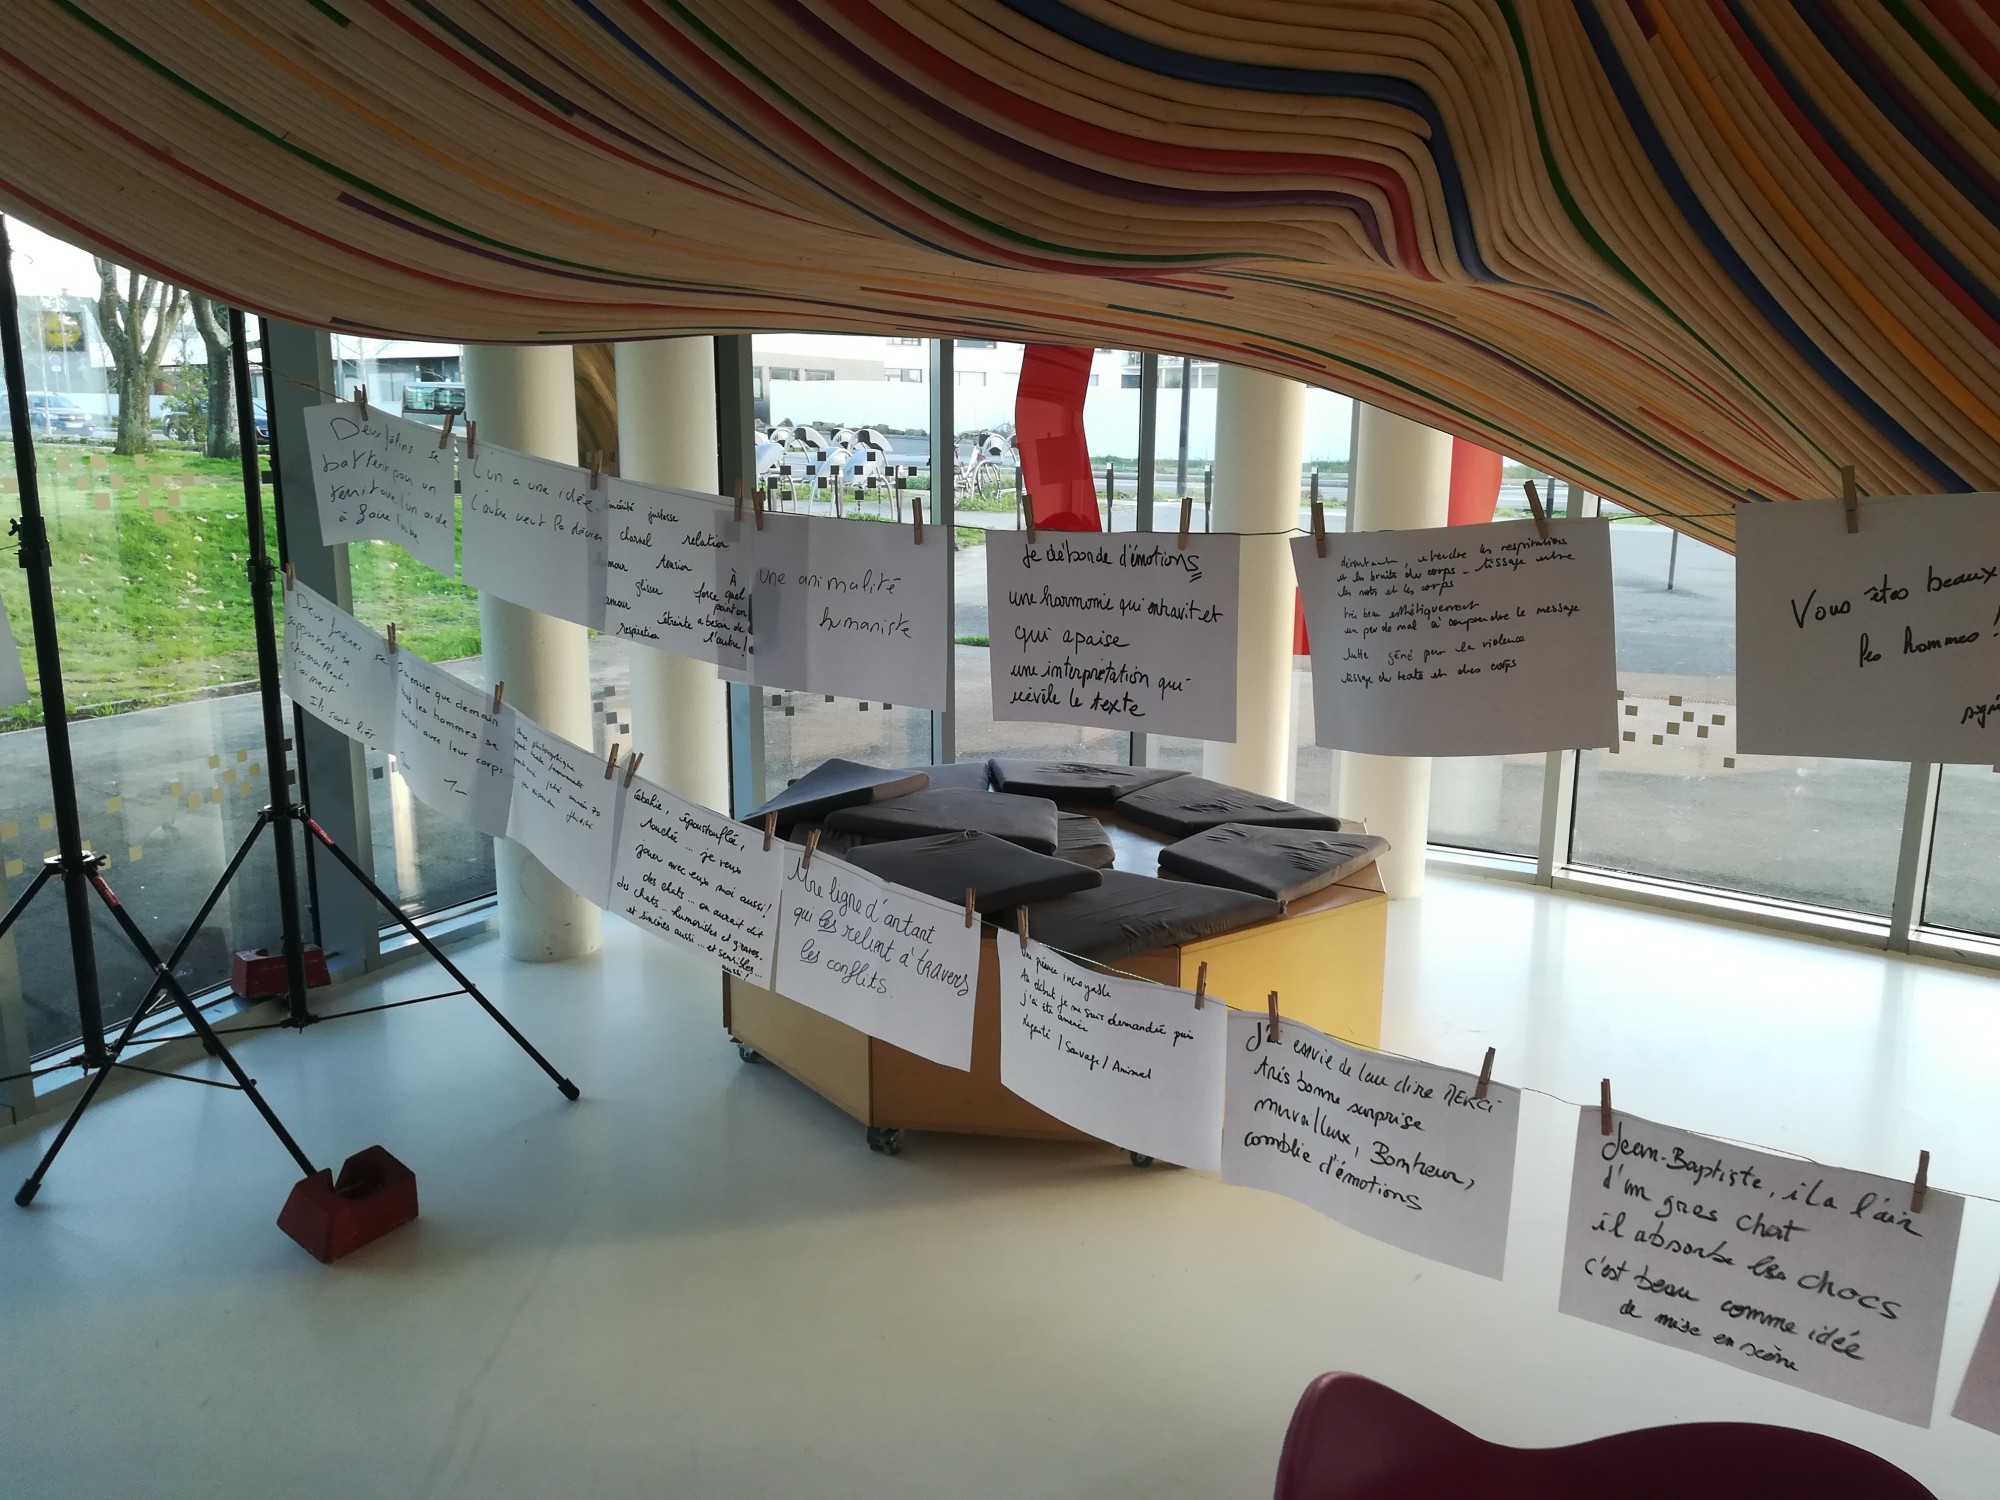 Deux félins se
battent pour un
territoire l'un aide
à faire
L'un a une idée
L'autre veut la
justesse
charnel relation
tension
glisser À
force quel
point on
amour étreinte a besoin de
respiration l'autre!
une animalité
humaniste
Je déborde d'émotions
une harmonie qui entravit et
qui apaise
une interprétation qui
révèle le texte
entendre les respirations
et les bruits du corps - tissage entre
les mots et les corps
très beau esthétiquement
un peu de mal à comprendre le message
lutte gêné par la violence
tissage du texte et des corps
Vous êtes beaux
les hommes!
Deux frères se
supportent, se
chamaillent,
s'aiment
Ils sont liés
que demain
tous les hommes se
avec leur corps
philosophique
fluidité
ébahie, époustouflée,
touchée ... je veux
jouer avec eux moi aussi!
des chats... on aurait dit
des chats... humoristes et graves.
et sincères aussi... et sensibles...
aussi!
Une ligne d'antant
qui les relient à travers
les conflits.
Une pièce incroyable
Au début je me suis demandée puis
j'ai été amenée
/ Sauvage / Animal
J'ai envie de leur dire MERCI
très bonne surprise
merveilleux, Bonheur,
comblée d'émotions
Jean-Baptiste, il a l'air
d'un gros chat
il absorbe les chocs
c'est beau comme idée
de mise en scène